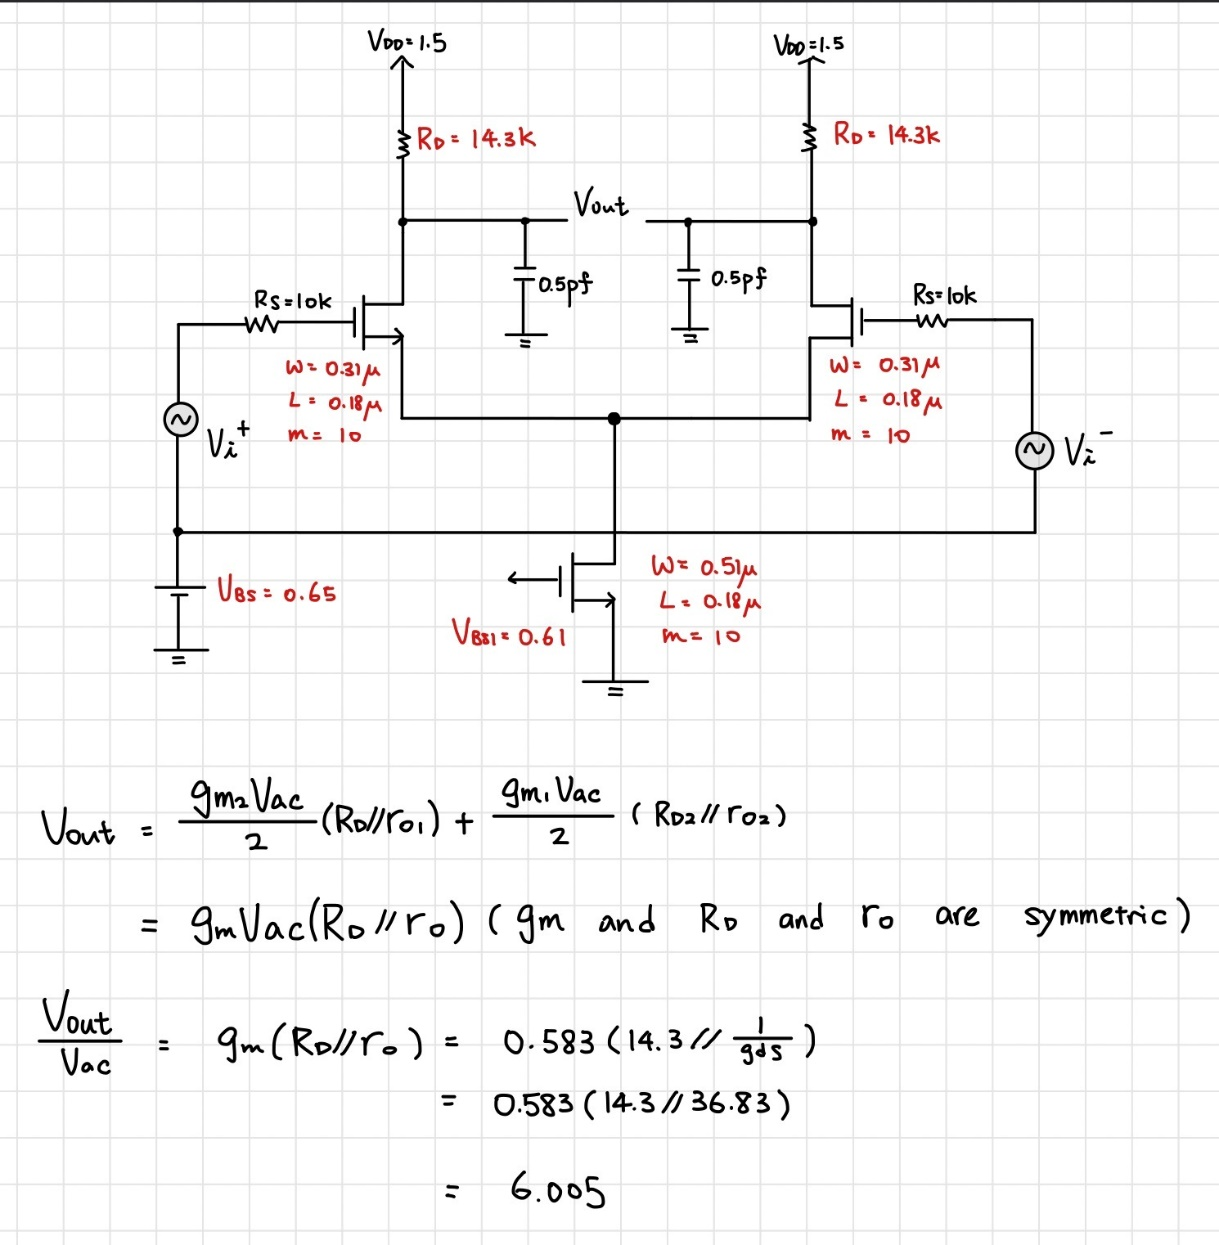 VDD=1.5
VDD=1.5
RD=14.3k
RD=14.3k
Vout
0.5pf
0.5pf
Rs=10k
Rs=10k
W=0.31μ
L=0.18μ
m=10
W=0.31μ
L=0.18μ
m=10
Vi+
Vi-
VBS=0.65
W=0.51μ
L=0.18μ
m=10
VBS1=0.61
Vout = gm2Vac/2 (RD//ro1) + gm1Vac/2 (RD2//ro2)
= gmVac(RD//ro) (gm and RD and ro are symmetric)
Vout/Vac = gm(RD//ro) = 0.583(14.3//1/gds)
= 0.583(14.3//36.83)
= 6.005